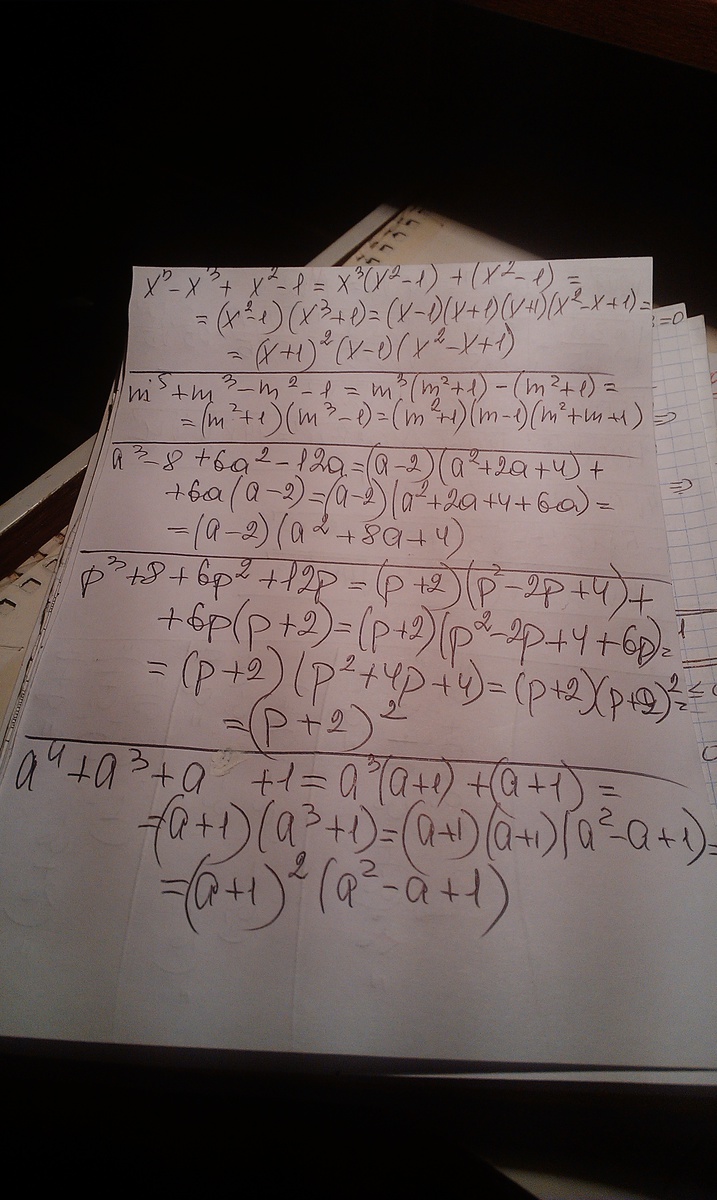 x⁵-x³+ x²-1 = x³(x²-1) + (x²-1) =
= (x²-1)(x³+1)=(x-1)(x+1)(x+1)(x²-x+1)=
= (x+1)²(x-1)(x²-x+1)
m⁵+m³-m²-1 = m³(m²+1) -(m²+1)=
=(m²+1)(m³-1)=(m²+1)(m-1)(m²+m+1)
a³-8+6a²-12a=(a-2)(a²+2a+4)+
+6a(a-2)=(a-2)(a²+2a+4+6a)=
=(a-2)(a²+8a+4)
p³+8+6p²+12p=(p+2)(p²-2p+4)+
+6p(p+2)=(p+2)(p²-2p+4+6p)=
=(p+2)(p²+4p+4)=(p+2)(p+2)²=
=(p+2)²
a⁴+a³+a +1= a³(a+1)+(a+1)=
=(a+1)(a³+1)=(a+1)(a+1)(a²-a+1)=
=(a+1)²(a²-a+1)
=0
⇒
⇒